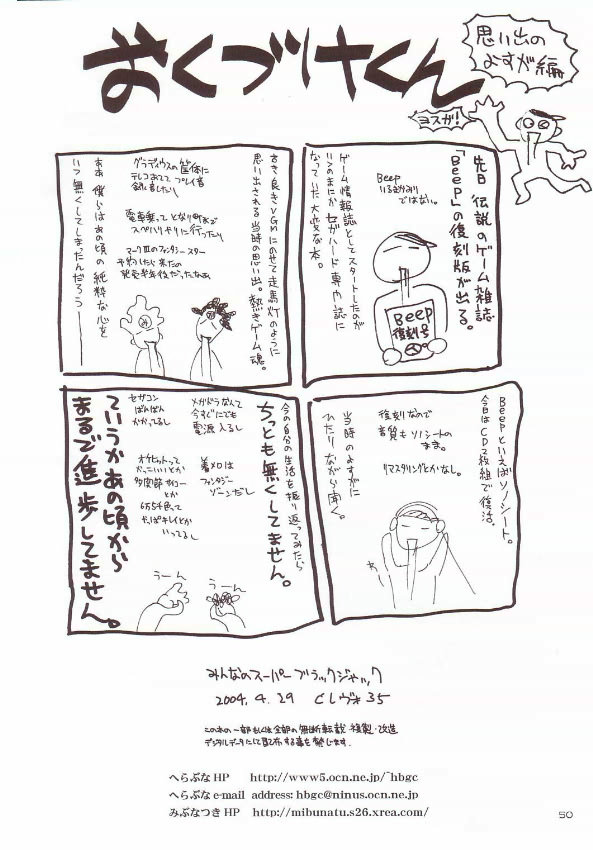 おくづけくん
思い出の
よすが編
ヨスガ！
先日 伝説のゲーム雑誌
「Beep」の復刻版が出る。
Beep
いるむかりではない。
ゲーム情報誌としてスタートしたのが
いつのまにかセガハード専門誌に
なっていた大変な本。
Beep
復刻号
BeepといえばソノシートÅ。
今日はCD2枚組で復活。
復刻なので
音質もソノシートの
まま。
リマスタリングとかなし。
当時のよすがに
ひたりながら聞く。
古き良きVGMにのせて走馬灯のように
思い出される当時の思い出。熱きゲーム魂。
グラディウスの筐体に
テレコあててプレイ音
録音したり
電車乗ってとなり町まで
スペハリやりに行ったり
マークⅢのファンタシースター
発売半年後だったなあ
ああ 僕らはあの頃の純粋な心を
いつ無くしてしまったんだろうー
今の自分の生活を振り返ってみたら
ちっとも無くしてません。
メガドラなんて
今すぐにでも
電源入るし
着メロは
ファンタジー
ゾーンだし
セガコン
ばんばん
かかってるし
オパオパって
かっこいいとか
多関節サイコー
とか
6万5千色って
やっぱキレイとか
いってるし
ていうかあの頃から
まるで進歩してません。
うーん
うーん
みんなのスーパーブラックジャック
2004.4.29 とレヴォ35
この本の一部もしくは全部の無断転載・複製・改造
デジタルデータにして配布する事を禁じます.
へらぶなHP http://www5.ocn.ne.jp/~hbgc
へらぶなe-mail address: hbgc@ninus.ocn.ne.jp
みぶなつきHP http://mibunatu.s26.xrea.com/
50